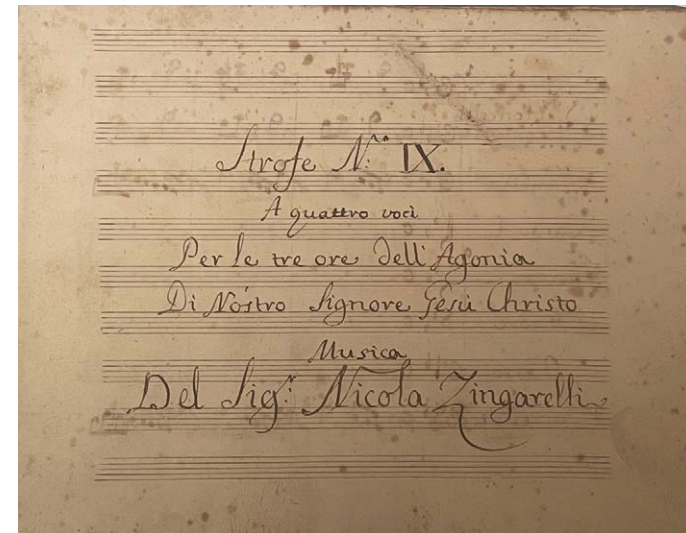 Strofe N.º IX.
A quattro voci
Per le tre ore dell'Agonia
Di Nostro Signore Gesù Christo
Musica
Del Sig.r Nicola Zingarelli